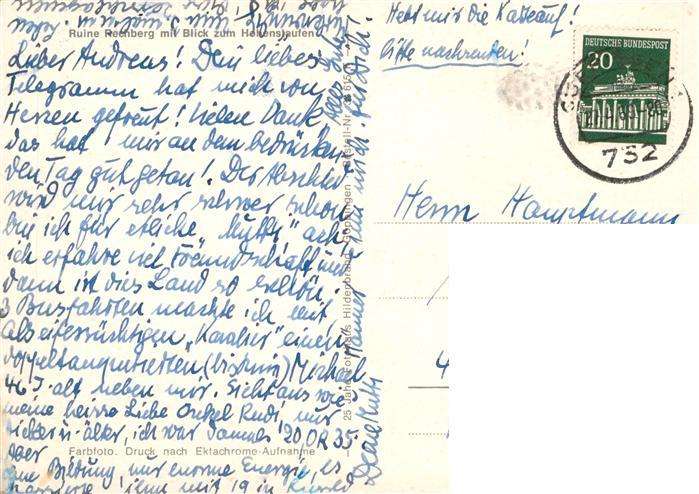 Ruine Rechberg mit Blick zum Hohenstaufen
Lieber Andreas! Dein liebes
Telegramm hat mich von
Herzen gefreut! Vielen Dank
das hat mir an dem bedrücken
den Tag gut getan! Der Abschied
wird mir sehr schwer schon
bin ich für etliche "Mutti" ach,
ich erfahre viel Freundschaft und
dann ist dies Land so schön.
3 Busfahrten machte ich mit
als eifersüchtigen "Kavalier" einen
doppeltamputierten Michael
46 J. alt neben mir. Sieht aus wie
meine heisse Liebe Onkel Rudi, nur
dicker u. älter, ich war damals 20, OR 35
aber
ohne Bildung, nur enorme Energie, es
ihm mit 19 in
Farbfoto. Druck nach Ektachrome-Aufnahme
25 Jahre Hildenbrand, Göppingen
Deine Mutti
Hebt mir die Karte auf!
Bitte nachsenden!
DEUTSCHE BUNDESPOST
20
732
Herrn Hauptmann